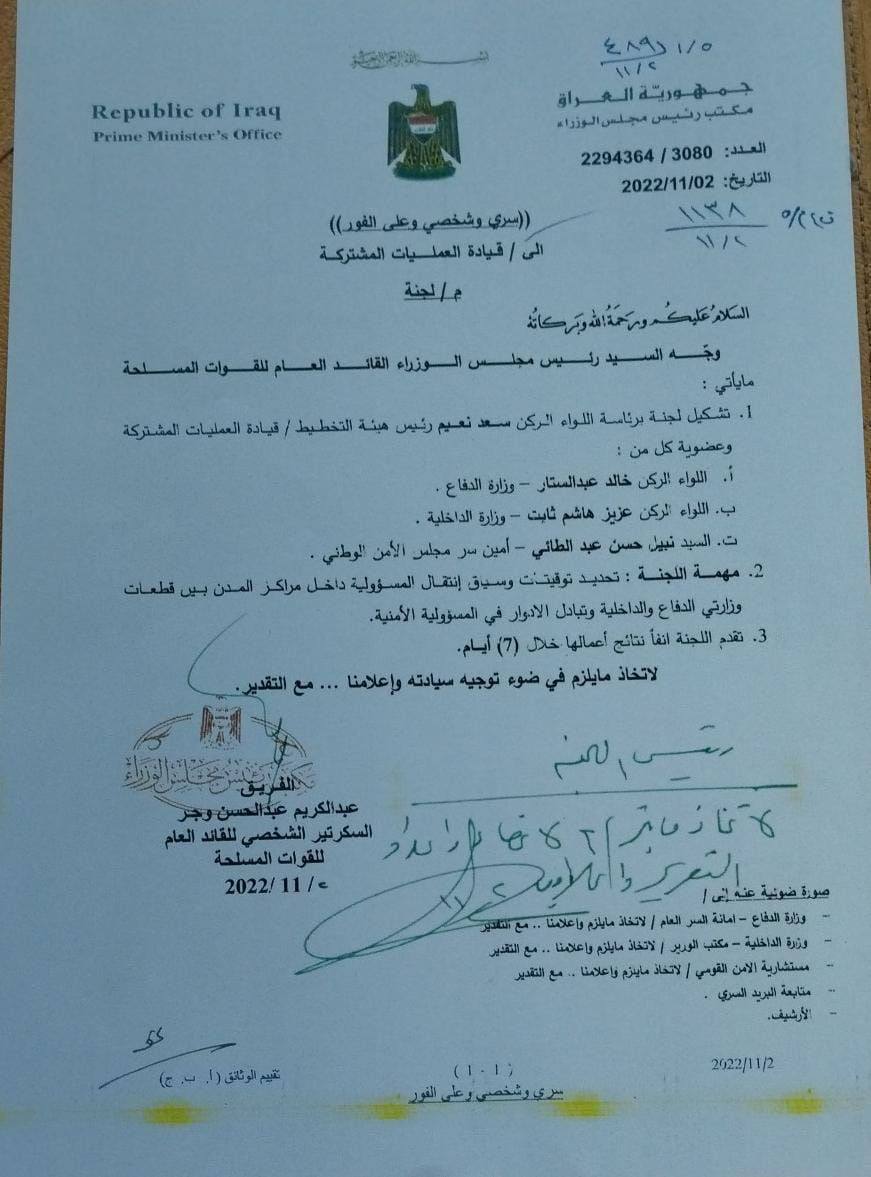 بسم الله الرحمن الرحيم
Republic of Iraq
Prime Minister's Office
جمهورية العراق
مكتب رئيس مجلس الوزراء
العدد: 3080 / 2294364
التاريخ: 2022/11/02
١١٣٨
١١/٢
((سري وشخصي وعلى الفور))
الى / قيادة العمليات المشتركة
م / لجنة
السلام عليكم ورحمة الله وبركاته
وجّه السيد رئيس مجلس الوزراء القائد العام للقوات المسلحة
مايأتي :
1. تشكيل لجنة برئاسة اللواء الركن سعد نعيم رئيس هيئة التخطيط / قيادة العمليات المشتركة
وعضوية كل من :
أ. اللواء الركن خالد عبدالستار – وزارة الدفاع .
ب. اللواء الركن عزيز هاشم ثابت – وزارة الداخلية .
ت. السيد نبيل حسن عبد الطائي – أمين سر مجلس الأمن الوطني .
2. مهمة اللجنة : تحديد توقيتات وسياق إنتقال المسؤولية داخل مراكز المدن بين قطعات
وزارتي الدفاع والداخلية وتبادل الادوار في المسؤولية الأمنية.
3. تقدم اللجنة انفاً نتائج أعمالها خلال (7) أيام.
لاتخاذ مايلزم في ضوء توجيه سيادته وإعلامنا ... مع التقدير.
مكتب رئيس مجلس الوزراء
الفريق
عبدالكريم عبدالحسن وجر
السكرتير الشخصي للقائد العام
للقوات المسلحة
/ 11 /2022
رئيس اللجنة
صورة ضوئية عنه إلى /
- وزارة الدفاع – امانة السر العام / لاتخاذ مايلزم وإعلامنا .. مع التقدير
- وزرة الداخلية – مكتب الوزير / لاتخاذ مايلزم وإعلامنا .. مع التقدير
- مستشارية الامن القومي / لاتخاذ مايلزم وإعلامنا .. مع التقدير
- متابعة البريد السري .
- الأرشيف.
2022/11/2
(1 - 1)
تقييم الوثائق (أ. ب. ج)
سري وشخصي وعلى الفور